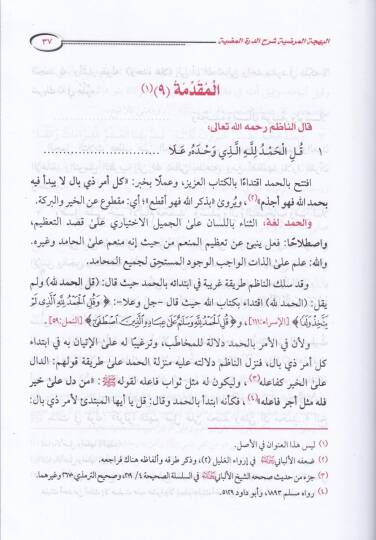 البهجة المرضية شرح الدرة المضية
٣٧
الْمُقَدِّمَةُ (٩) (١)
قال الناظم رحمه الله تعالى:
١ قُلِ الْحَمْدُ لِلَّهِ الَّذِي وَحْدَهُ عَلَا ..............................
افتتح بالحمد اقتداءًا بالكتاب العزيز، وعملًا بخبر: «كل أمر ذي بال لا يبدأ فيه
بحمد الله فهو أجذم»(٢)، ويُروىٰ «بذكر الله فهو أقطع»؛ أي: مقطوع عن الخير والبركة.
والحمد لغة: الثناء باللسان علىٰ الجميل الاختياري علىٰ قصد التعظيم،
واصطلاحًا: فعل ينبئ عن تعظيم المنعم من حيث إنه منعم علىٰ الحامد وغيره.
والله: علم علىٰ الذات الواجب الوجود المستحق لجميع المحامد.
وقد سلك الناظم طريقة غريبة في ابتدائه بالحمد حيث قال: (قل الحمد لله) ولم
يقل: (الحمد لله) اقتداء بكتاب الله حيث قال -جل وعلا-: ﴿وَقُلِ الْحَمْدُ لِلَّهِ الَّذِي لَمْ
يَتَّخِذْ وَلَدًا﴾ [الإسراء:١١١]، و﴿قُلِ الْحَمْدُ لِلَّهِ وَسَلَامٌ عَلَىٰ عِبَادِهِ الَّذِينَ اصْطَفَىٰ﴾ [النمل:٥٩].
ولأن في الأمر بالحمد دلالة للمخاطب، وترغيبًا له علىٰ الإتيان به في ابتداء
كل أمر ذي بال، فنزل الناظم دلالته عليه منزلة الحمد علىٰ طريقة قولهم: الدال
علىٰ الخير كفاعله(٣)، وليكون له مثل ثواب فاعله لقوله ﷺ: «من دل علىٰ خير
فله مثل أجر فاعله»(٤)، فكأنه ابتدأ بالحمد وقال: قل يا أيها المبتدئ لأمر ذي بال:
(١) ليس هذا العنوان في الأصل.
(٢) ضعفه الألباني في إرواء الغليل (٢)، وذكر طرقه وألفاظه هناك فراجعه.
(٣) جزء من حديث صححه الشيخ الألباني في السلسلة الصحيحة ٤/ ٢١٩، وصحيح الترمذي ٢٦٧٠ وغيرهما.
(٤) رواه مسلم ١٨٩٣، وأبو داود ٥١٢٩.